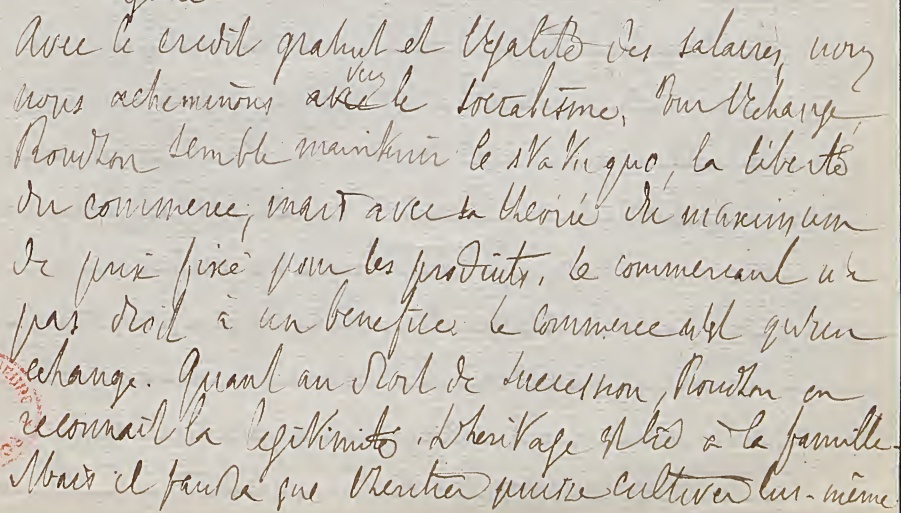 Avec le credit gratuit et l'égalité des salaires, nous
nous acheminons avec vers le socialisme. Pour l'echange,
Proudhon semble maintenir le statu quo, la liberté
du commerce, mais avec sa theorie du maximum
de prix fixé pour les produits. Le commercant n'a
pas droit à un benefice. le commerce n'est qu'un
echange. Quant au droit de succession, Proudhon en
reconnait la legitimité. L'heritage est lié à la famille.
Mais il faudra que l'heritier puisse cultiver lui-même.